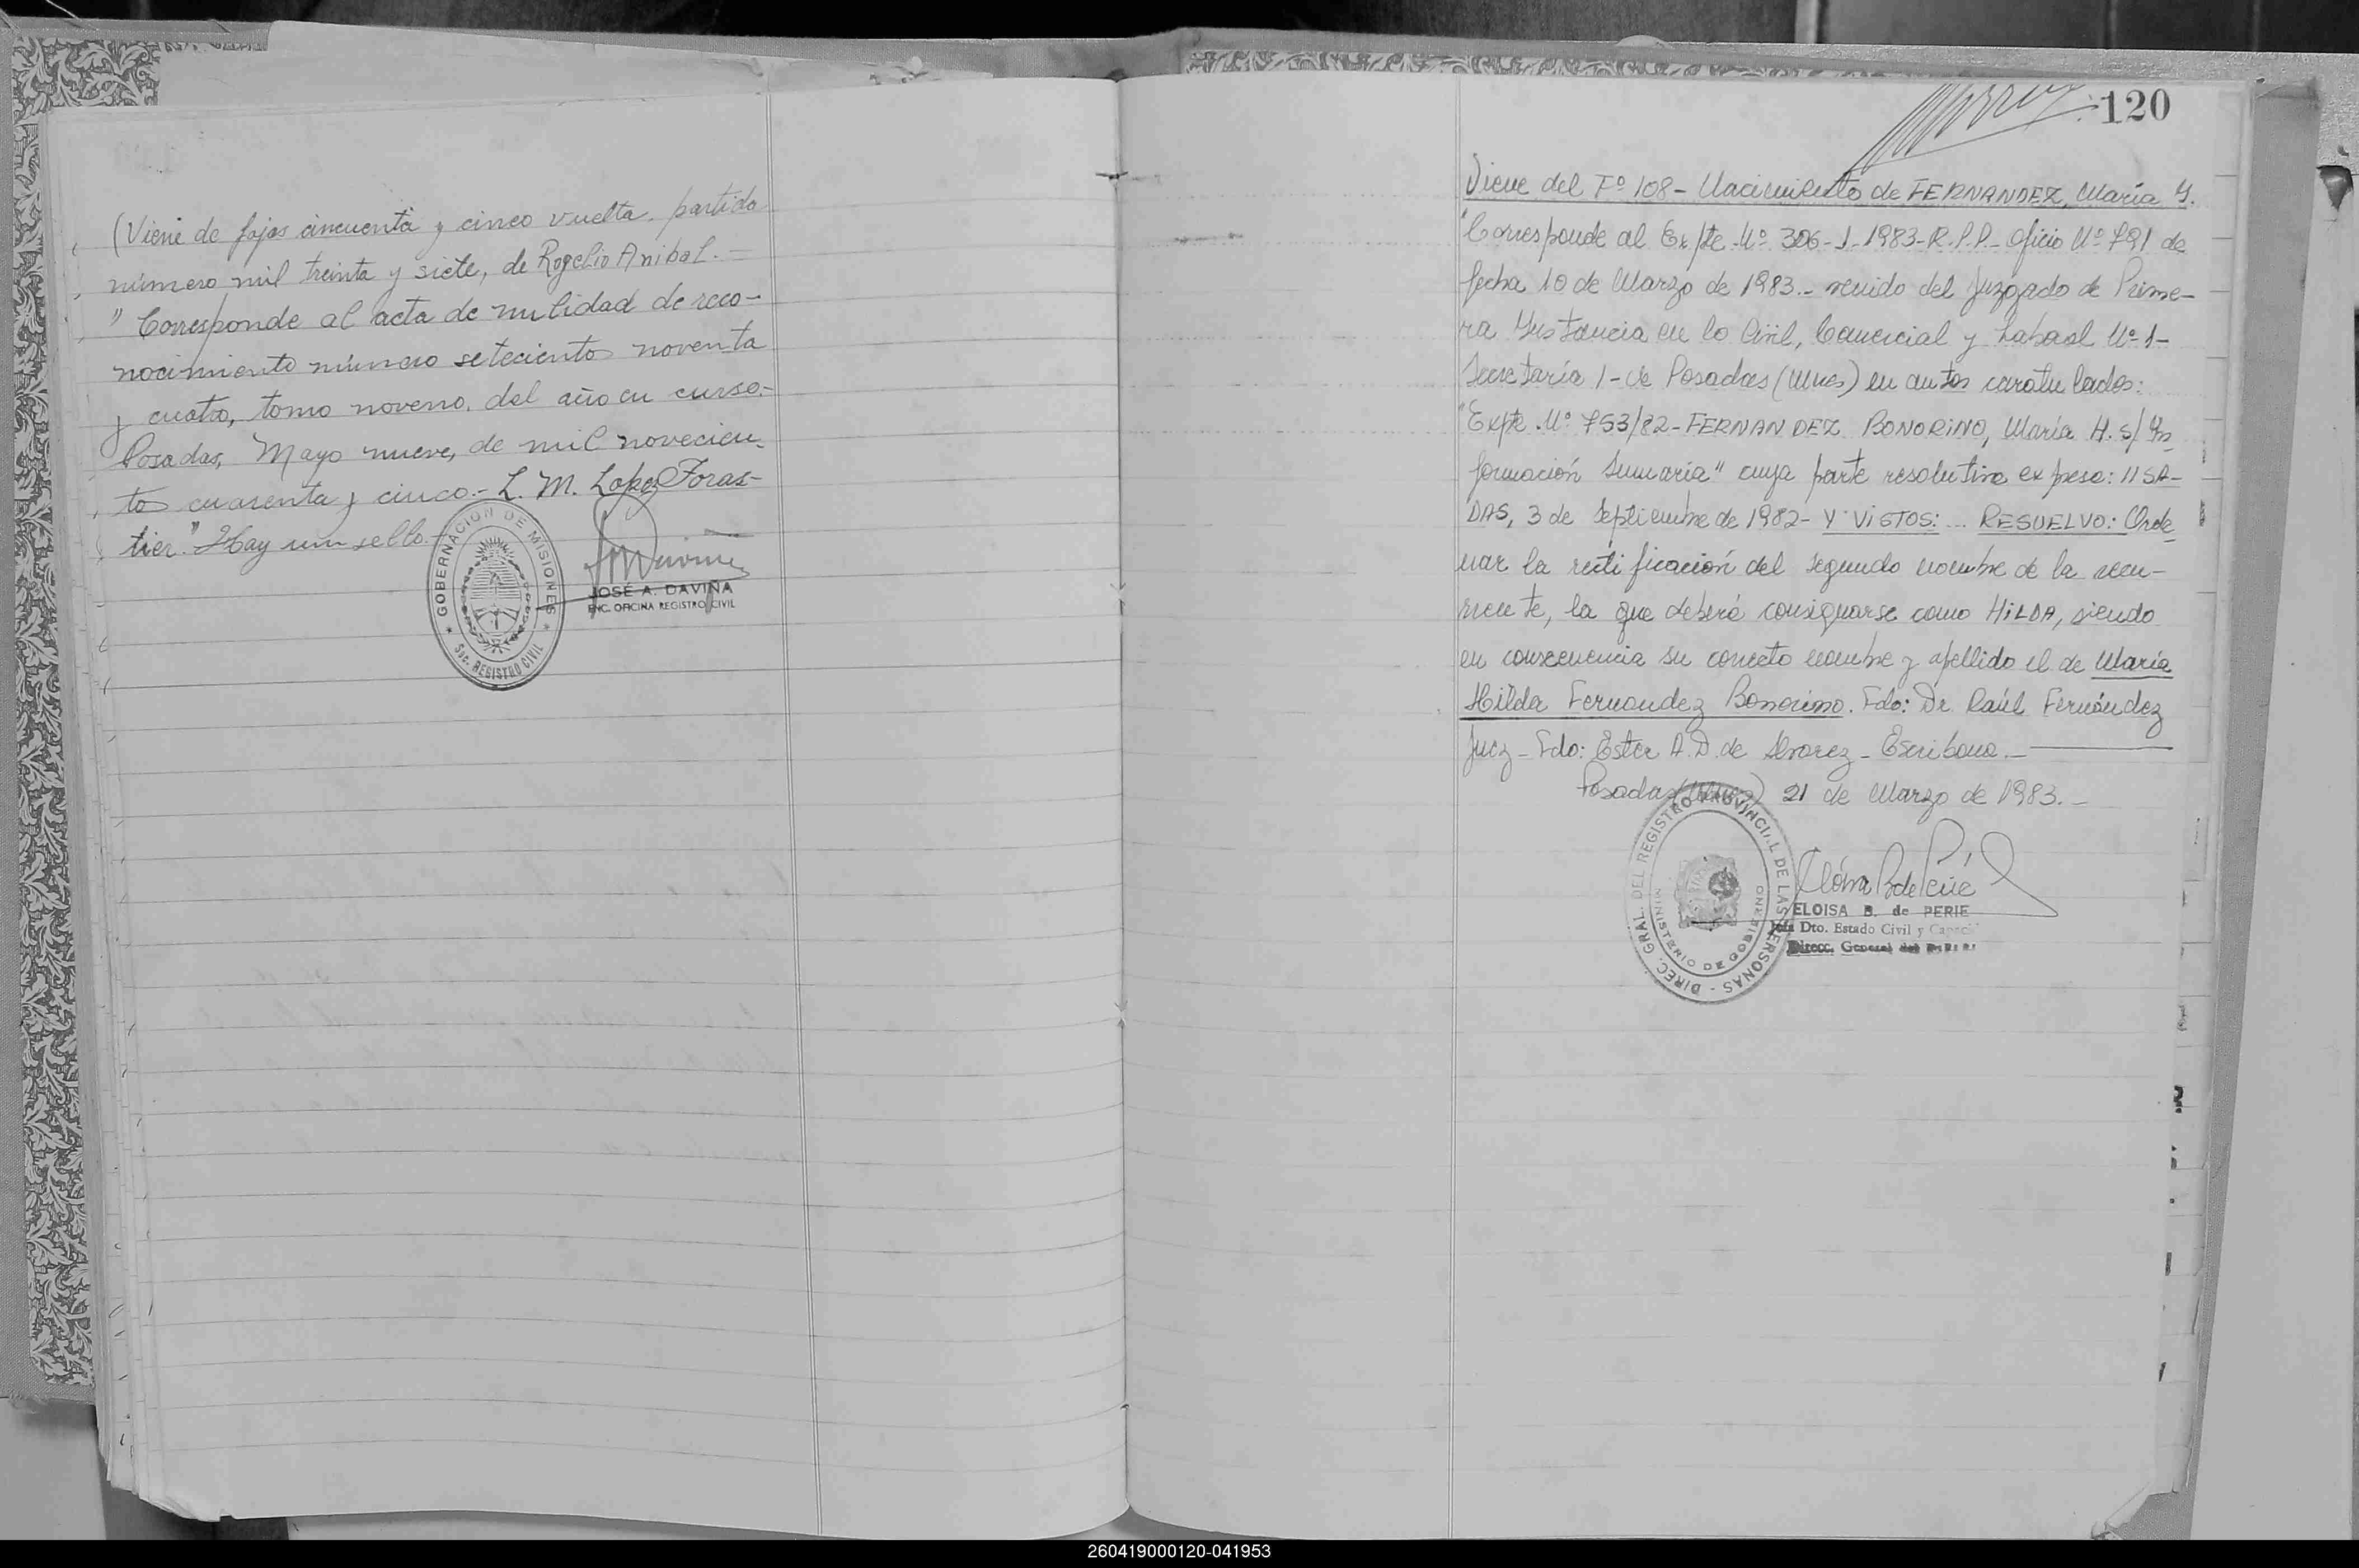 (Viene de fojas cincuenta y cinco vuelta. partida
número mil treinta y siete, de Rogelio Anibal.-
" Corresponde al acta de nulidad de reco-
nocimiento número setecientos noventa
y cuatro, tomo noveno, del año en curso.-
Posadas, Mayo nueve, de mil novecien-
tos cuarenta y cinco.- L. M. Lopez Foras-
tier." Hay un sello.-
GOBERNACION DE MISIONES
Sec. REGISTRO CIVIL
JOSÉ A. DAVIÑA
ENC. OFICINA REGISTRO CIVIL
120
Viene del Fº 108- Nacimiento de FERNANDEZ, María Y.
"Corresponde al Expte Nº 306-J-1983-R.P.P.- Oficio Nº 791 de
fecha 10 de Marzo de 1983.- venido del Juzgado de Prime-
ra Instancia en lo Civil, Comercial y Laboral Nº 1-
Secretaría 1- de Posadas (Mnes) en autos caratulados:
"Expte. Nº 753/82- FERNANDEZ BONORINO, María H. s/ In
formación Sumaria" cuya parte resolutiva expresa: //SA-
DAS, 3 de Septiembre de 1982- Y VISTOS: ... RESUELVO: Orde
nar la rectificación del segundo nombre de la recu-
rrente, la que deberá consignarse como HILDA, siendo
en consecuencia su correcto nombre y apellido el de María
Hilda Fernandez Bonorino. Fdo: Dr Raúl Fernández
Juez- Fdo: Ester A.D. de Alvarez- Escribana.-
Posadas (Mnes) 21 de Marzo de 1983.-
DIREC. GRAL. DEL REGISTRO PROVINCIAL DE LAS PERSONAS -
MINISTERIO DE GOBIERNO
ELOISA B. de PERIE
Jefa Dto. Estado Civil y Capaci
Direcc. General del
260419000120-041953